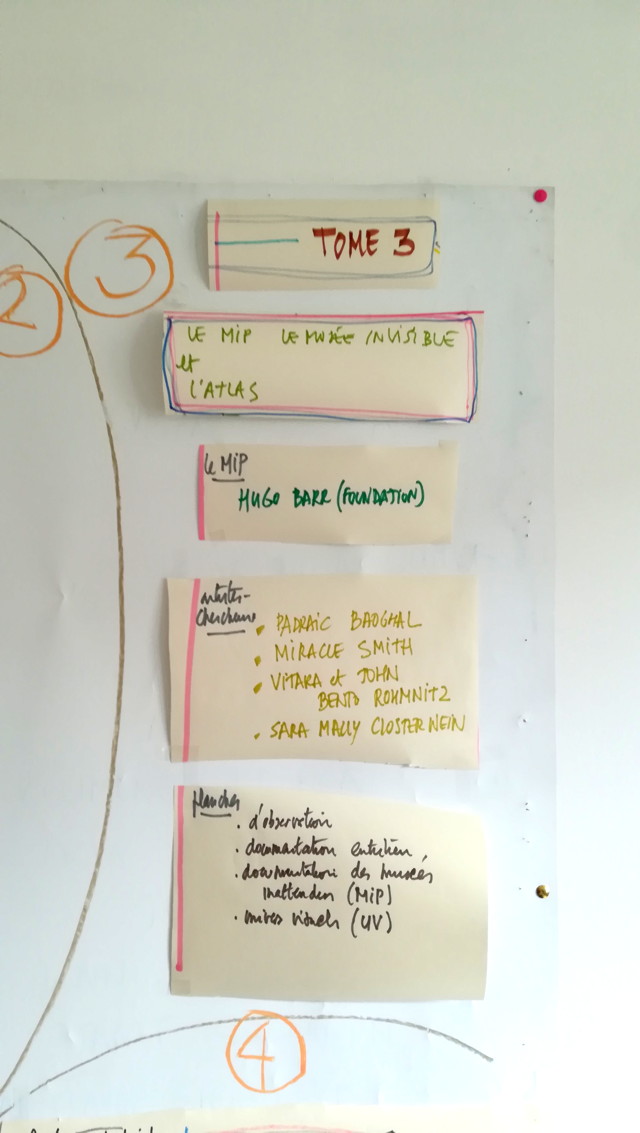 3
2
TOME 3
LE MIP LE MUSÉE INVISIBLE
et
L'ATLAS
le MIP
HUGO BARR (FOUNDATION)
artistes-
chercheurs
• PADRAIC BAOGHAL
• MIRACLE SMITH
• VITARA et JOHN
BENTO ROHMNITZ
• SARA MALLY CLOSTERNEIN
planches
• d'observation
• documentation entretien,
• documentation des musées
inattendus (MIP)
• univers visuels (UV)
4